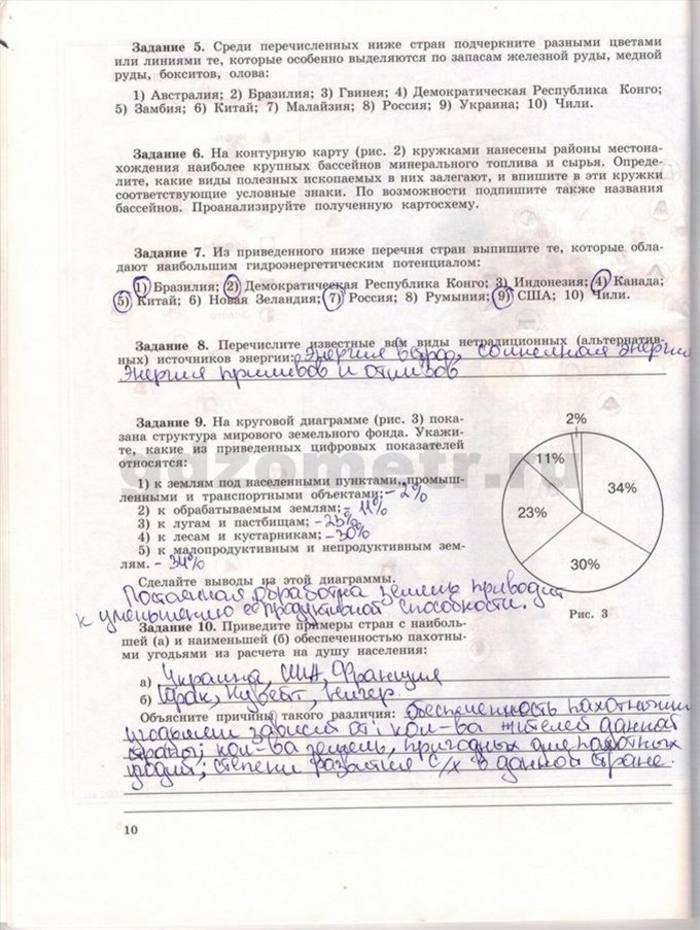 Задание 5. Среди перечисленных ниже стран подчеркните разными цветами
или линиями те, которые особенно выделяются по запасам железной руды, медной
руды, бокситов, олова:
1) Австралия; 2) Бразилия; 3) Гвинея; 4) Демократическая Республика Конго;
5) Замбия; 6) Китай; 7) Малайзия; 8) Россия; 9) Украина; 10) Чили.
Задание 6. На контурную карту (рис. 2) кружками нанесены районы местона-
хождения наиболее крупных бассейнов минерального топлива и сырья. Опреде-
лите, какие виды полезных ископаемых в них залегают, и впишите в эти кружки
соответствующие условные знаки. По возможности подпишите также названия
бассейнов. Проанализируйте полученную картосхему.
Задание 7. Из приведенного ниже перечня стран выпишите те, которые обла-
дают наибольшим гидроэнергетическим потенциалом:
1) Бразилия; 2) Демократическая Республика Конго; 3) Индонезия; 4) Канада;
5) Китай; 6) Новая Зеландия; 7) Россия; 8) Румыния; 9) США; 10) Чили.
Задание 8. Перечислите известные вам виды нетрадиционных (альтернатив-
ных) источников энергии: энергия ветра, солнечная энергия
энергия приливов и отливов
Задание 9. На круговой диаграмме (рис. 3) пока-
зана структура мирового земельного фонда. Укажи-
те, какие из приведенных цифровых показателей
относятся:
1) к землям под населенными пунктами, промыш-
ленными и транспортными объектами; - 2%
2) к обрабатываемым землям; - 11%
3) к лугам и пастбищам; - 23%
4) к лесам и кустарникам; - 30%
5) к малопродуктивным и непродуктивным зем-
лям. - 34%
Сделайте выводы из этой диаграммы.
Постоянная обработка земель приводит
к уменьшению её продуктивной способности.
2%
11%
34%
23%
30%
Рис. 3
gdzometr.ru
Задание 10. Приведите примеры стран с наиболь-
шей (а) и наименьшей (б) обеспеченностью пахотны-
ми угодьями из расчета на душу населения:
а) Украина, США, Франция
б) Ирак, Кувейт, Нигер.
Объясните причины такого различия: обеспеченность пахотными
угодьями зависит от: кол-ва жителей данной
страны; кол-ва земель, пригодных для пахотных
угодий; степени развития с/х в данной стране.
10